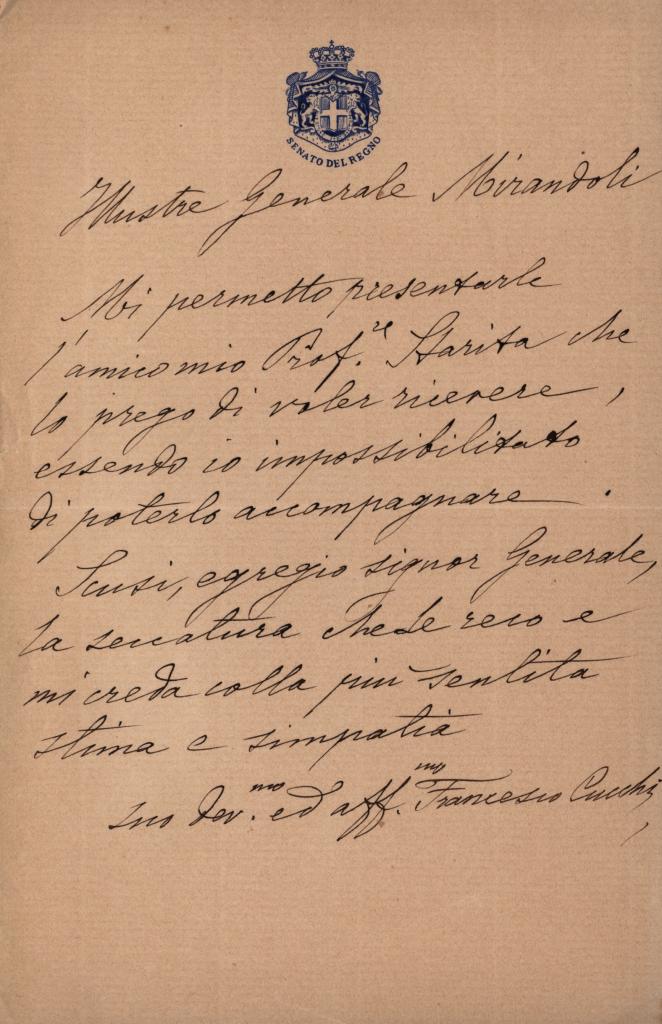 SENATO DEL REGNO
Illustre Generale Mirandoli
Mi permetto presentarle
l'amico mio Prof.re Starita che
lo prego di voler ricevere,
essendo io impossibilitato
di poterlo accompagnare.
Scusi, egregio signor Generale,
la seccatura che Le reco e
mi creda colla più sentita
stima e simpatia
suo dev.mo ed aff.mo Francesco Cucchi